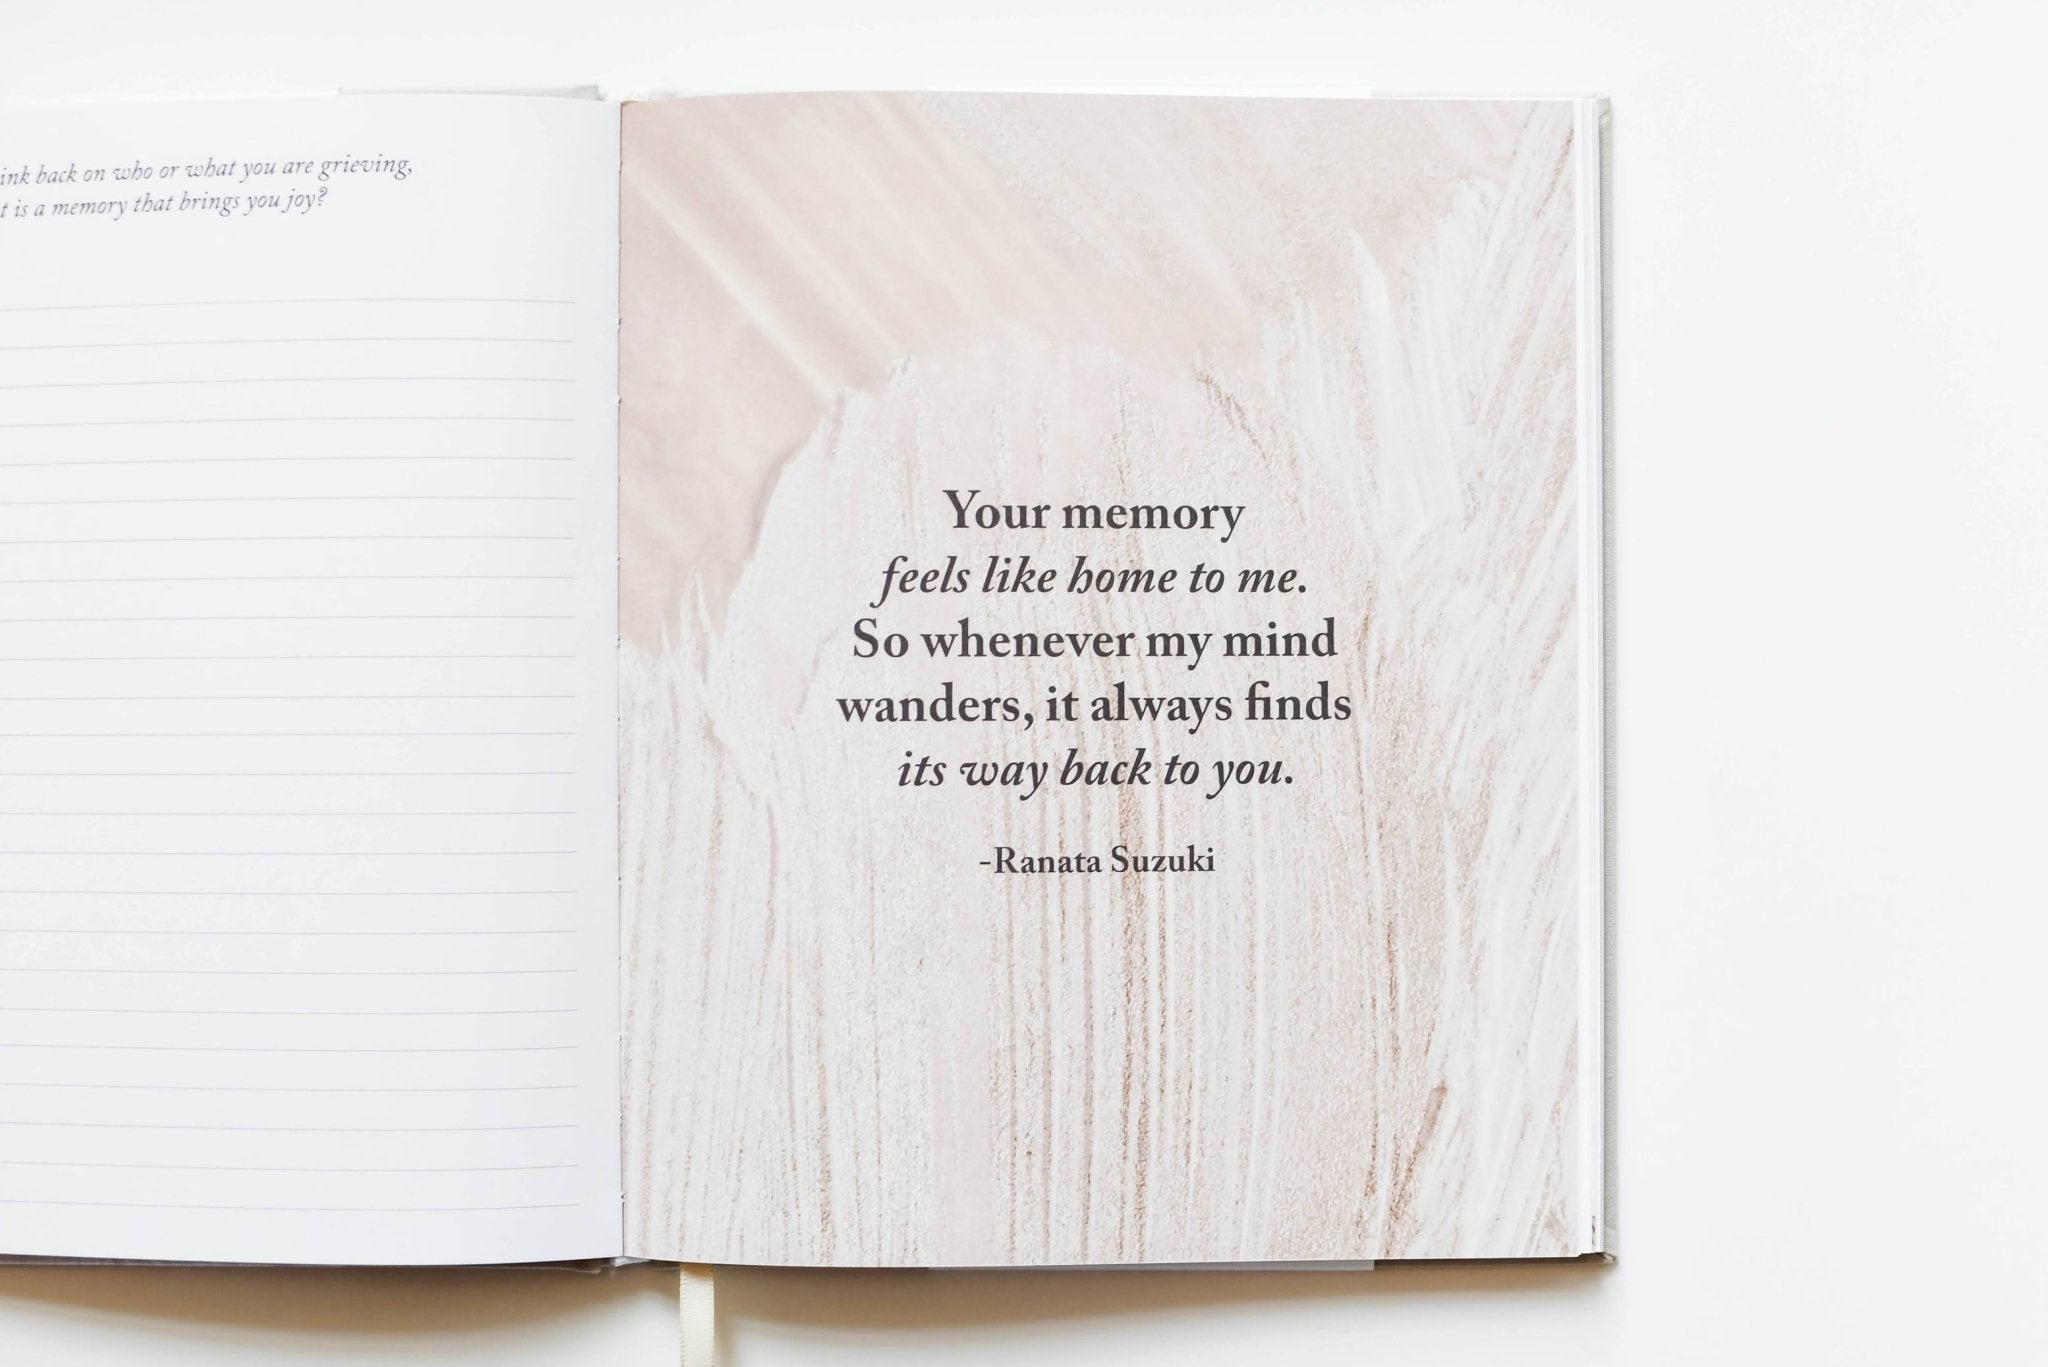 back on who or what you are grieving,
is a memory that brings you joy?
Your memory
feels like home to me.
So whenever my mind
wanders, it always finds
its way back to you.
-Ranata Suzuki